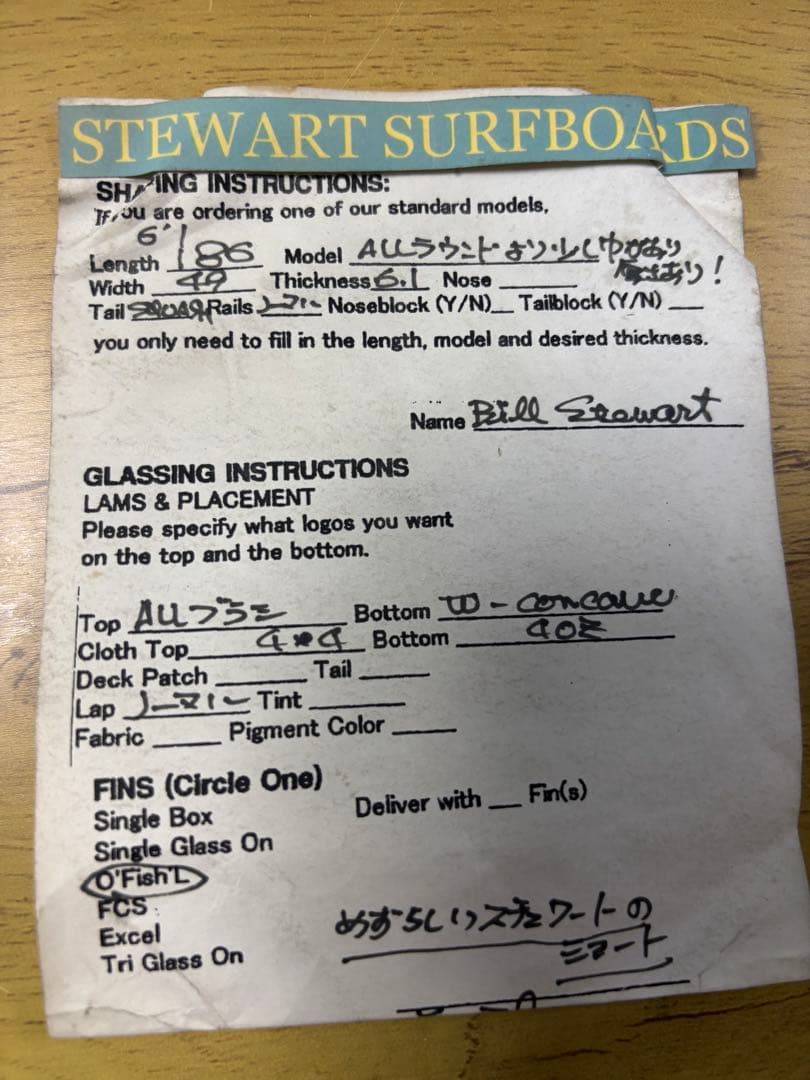 STEWART SURFBOARDS
SHAPING INSTRUCTIONS:
If you are ordering one of our standard models,
Length 6'1 186 Model ALLラウンドより少し巾があり
Width 49 Thickness 6.1 Nose あり!
Tail Rails ノーマル Noseblock (Y/N) Tailblock (Y/N)
you only need to fill in the length, model and desired thickness.
Name Bill Stewart
GLASSING INSTRUCTIONS
LAMS & PLACEMENT
Please specify what logos you want
on the top and the bottom.
Top Bottom W-concave
Cloth Top 4*4 Bottom 4oz
Deck Patch Tail
Lap ノーマル Tint
Fabric Pigment Color
FINS (Circle One)
Single Box Deliver with Fin(s)
Single Glass On
O'Fish'L
FCS
Excel
Tri Glass On
めずらしいスチュワートの
ショート